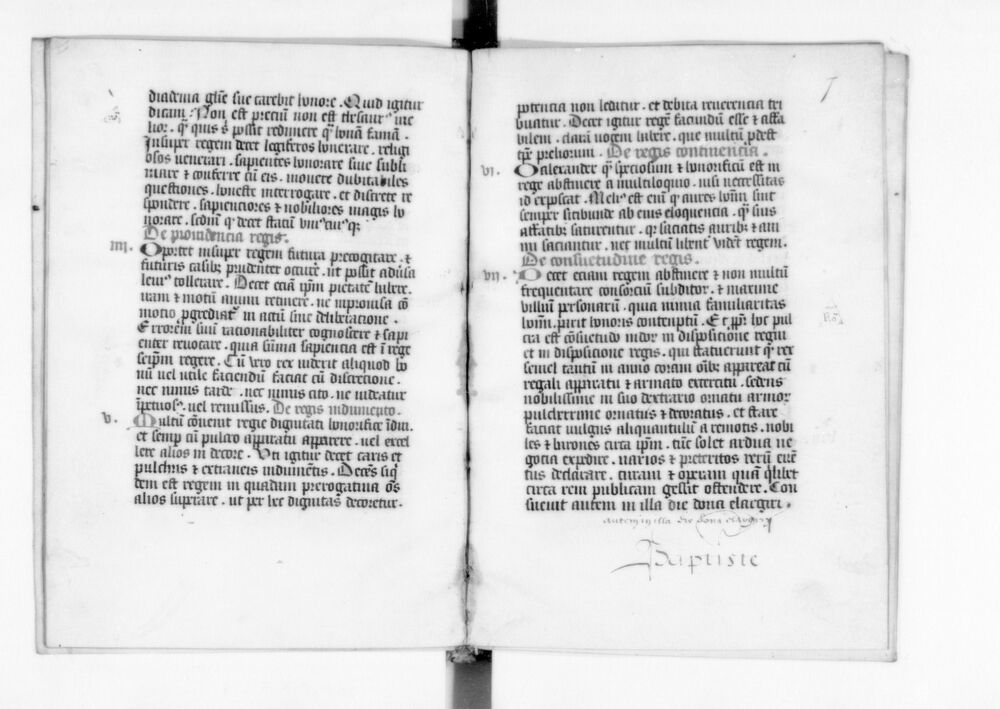 diadema glie sue carebit honore . Quid igitur
dicam ? Non est precium non est thesaurꝰ me
lior . qͥ quis ẽ possit redimere qͣ bonã famã .
Insuper regem decet legiferos honerare . religi
osos venerari . sapientes honorare siue subli
mare et conferre cũ eis . mouere dubitabiles
questiones . honeste interrogare . et discrete re
spondere . sapienciores et nobiliores magis ho
norare . scdm qͥ decet statũ
De prouidencia regis .
iiii . Oportet insuper regem futura precogitare . et
futuris casibꝫ prudenter occure . ut possit aduersa
leuiꝰ tollerare . Decet eciã ipm pietatẽ habere .
iram et motũ animi retinere . ne inprouisa cõ
motio pgrediatˀ in actũ sine deliberacione .
Errorem suũ racionabiliter cognoscere et sapi
enter reuocare . quia sũma sapiencia est ĩ rege
seipm regere . Cũ vero rex uiderit aliquod bo
nũ uel utile faciendũ faciat cũ discrecione .
nec nimis tarde . nec nimis cito . ne uideatur
ĩpetuosꝰ . uel remissus . De regis indumento .
v . Multũ cõuenit regie dignitati honorifice ĩdui .
et semp cũ pulcro apparatu apparere . uel excel
lere alios in decore . Uti igitur decet caris et
pulchris et extraneis indumentis . Decẽs siqͥ
dem est regem in quadam prerogatiua oẽs
alios suprare . ut per hec dignitas decoretur .
7
potencia non leditur . et debita reuerencia tri
buatur . Decet igitur regẽ facundũ esse et affa
bilem . clarã uocem habere . que multũ pdest
tpr preliorum . De regis continencia .
vi . O alexander qͣ speciosum et honorificũ est in
rege abstinere a multiloquio . nisi necessitas
id exposcat . Melꝰ est enĩ qͥ aures hoĩm sint
semper sitibunde ab eius eloquencia . qͣ suis
affatibꝫ saturentur . qͥ saciatis auribꝫ et ani
mi saciantur . nec multũ libent vidẽt regem .
De consuetudine regis .
vii . Decet eciam regem abstinere et non multũ
frequentare consorciũ subditor . et maxime
viliũ personarũ . quia nimia familiaritas
hoĩm . parit honoris contemptũ . Et ppt hoc pul
cra est cõsuetudo indor in disposicione regni
et in disposicione regis . qui statuerunt qͥ rex
semel tantũ in anno coram oĩbꝫ appareat cũ
regali apparatu et armato exercitu . sedens
nobilissime in suo dextrario ornatu armor
pulcherrime ornatus et decoratus . et stare
faciat uulgus aliquantulũ a remotis . nobi
les et barones circa ipm . tũc solet ardua ne
gocia expedire . uarios et preteritos rerũ euẽ
tus declarare . curam et operam quã qͥlibet
circa rem publicam gessit ostendere . Con
sueuit autem in illa die dona elargiri .
autem in illa die dona elargiri
Baptiste